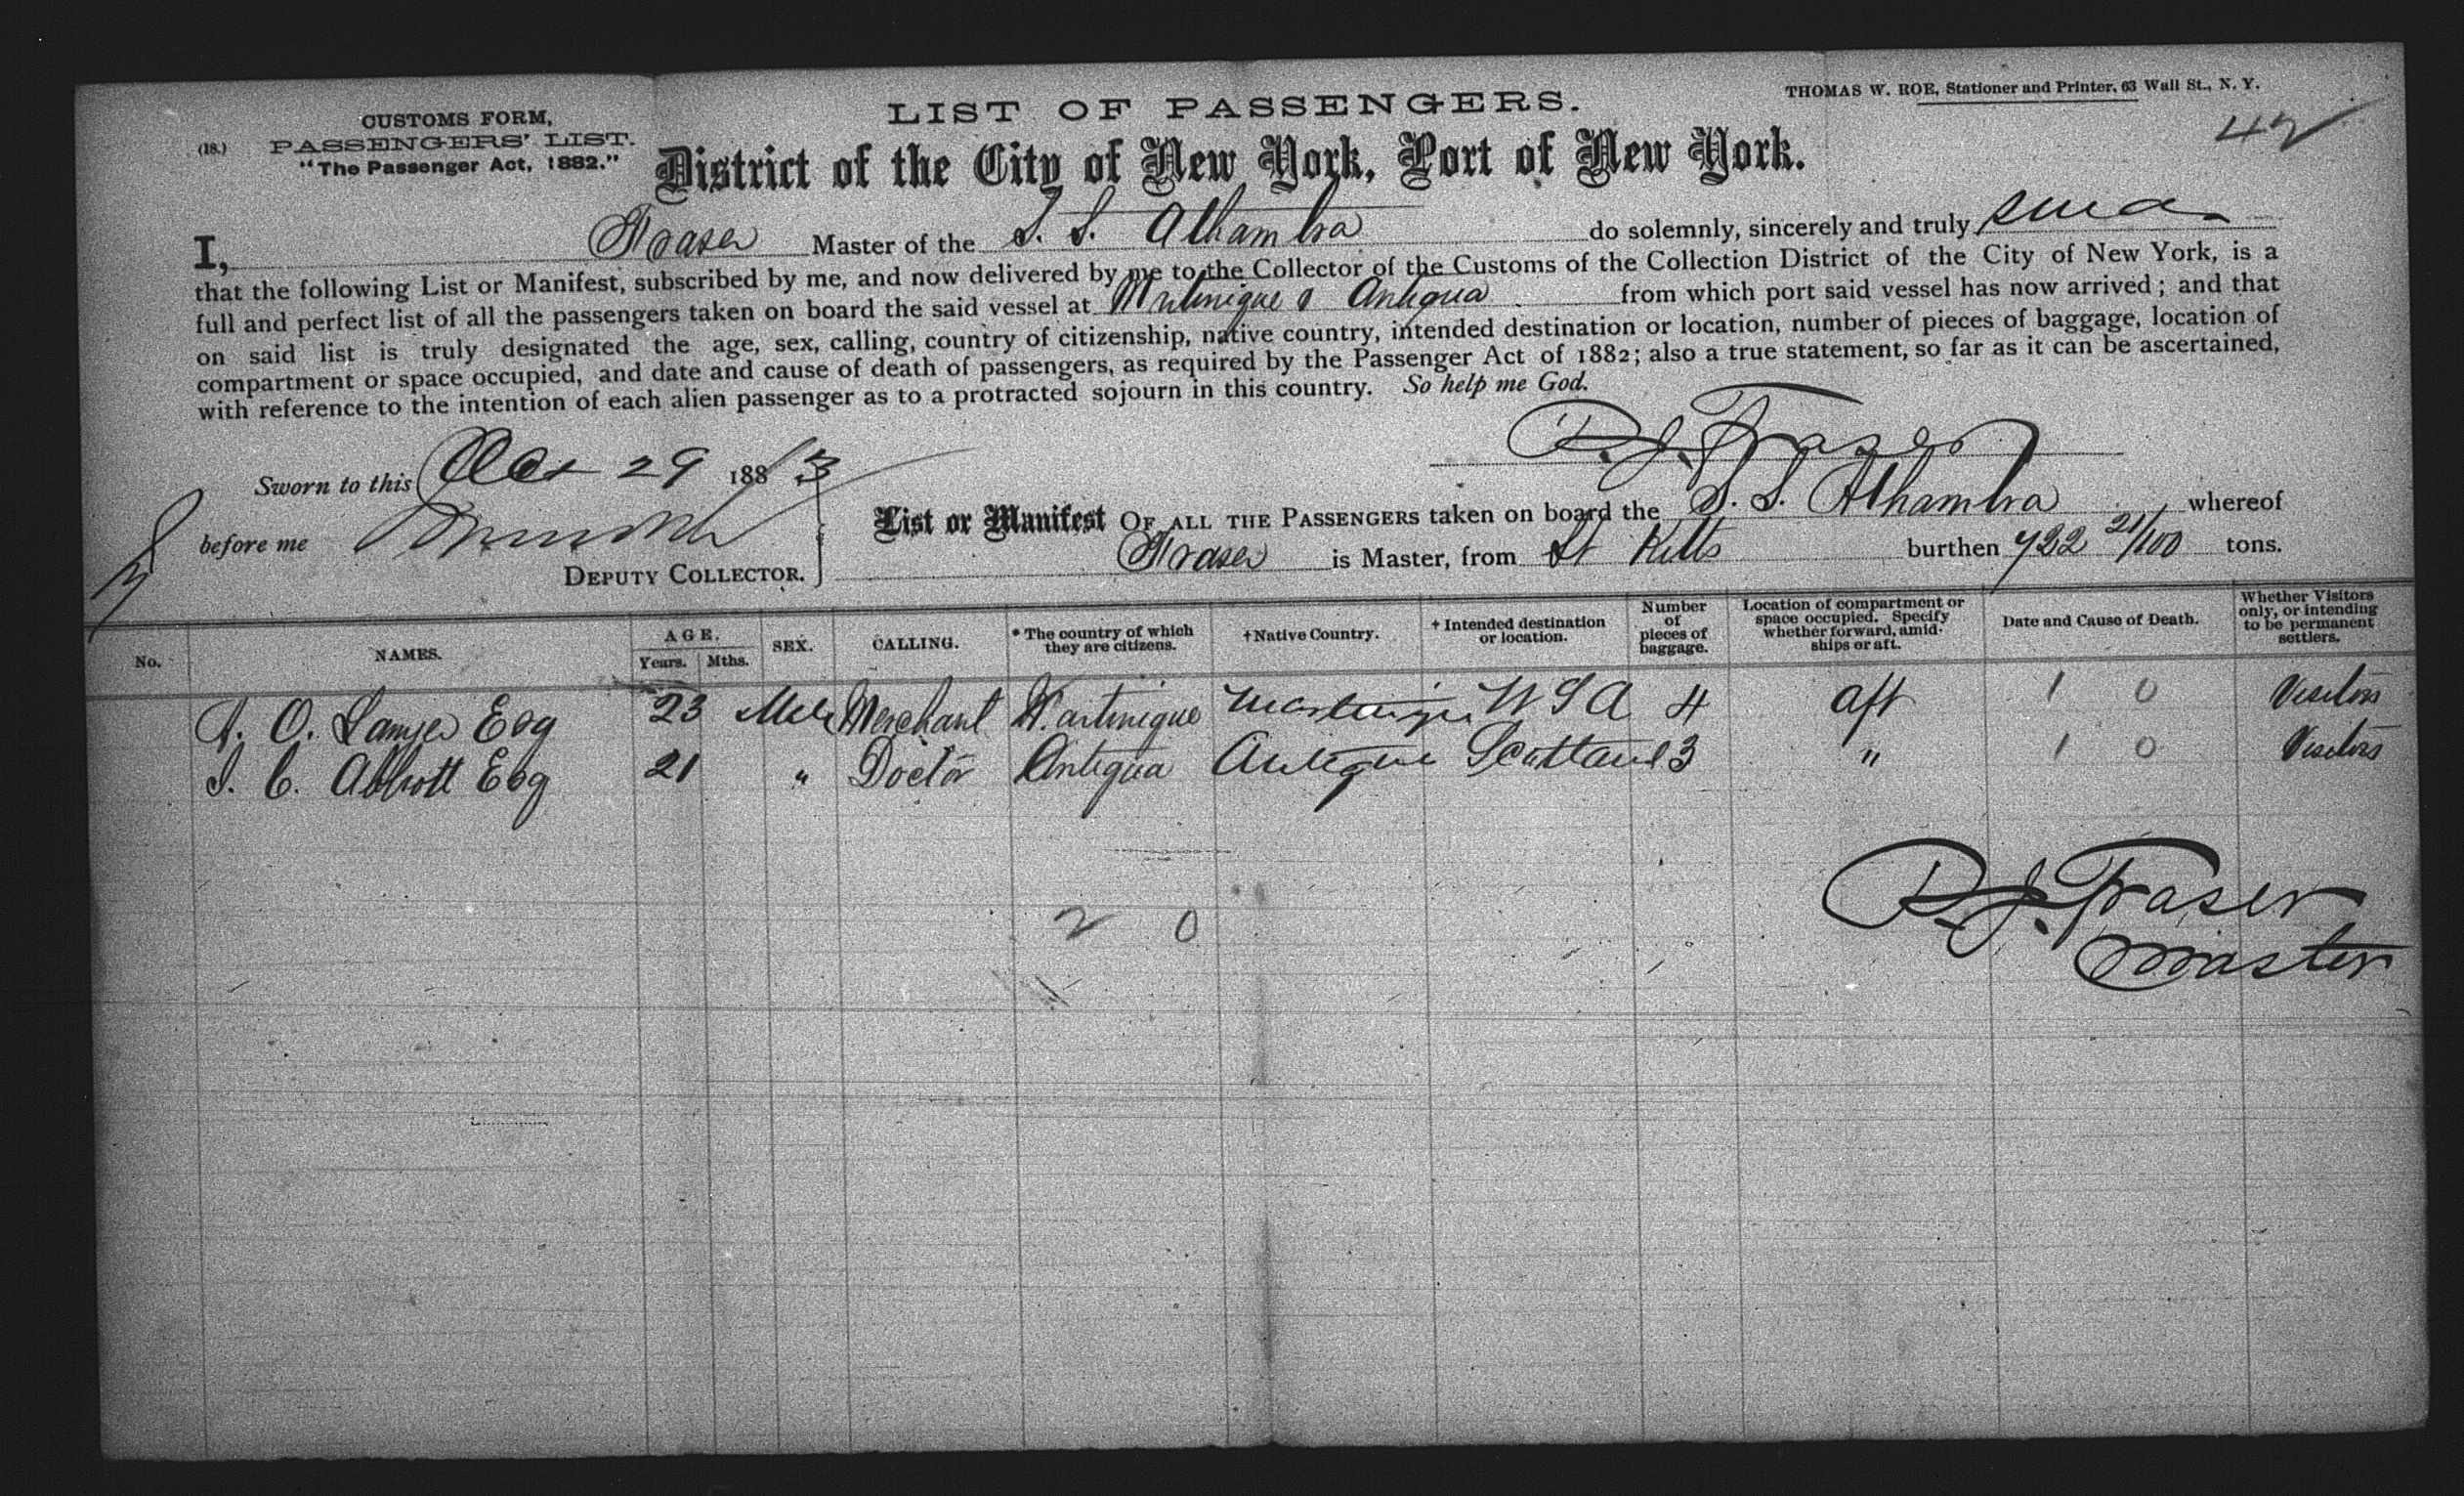 THOMAS W. ROE, Stationer and Printer, 63 Wall St., N. Y.
CUSTOMS FORM,
(18.) PASSENGERS' LIST.
"The Passenger Act, 1882."
LIST OF PASSENGERS.
42
District of the City of New York, Port of New York.
I, Fraser Master of the S. S. Alhambra do solemnly, sincerely and truly swear
that the following List or Manifest, subscribed by me, and now delivered by me to the Collector of the Customs of the Collection District of the City of New York, is a
full and perfect list of all the passengers taken on board the said vessel at Martinique & Antigua from which port said vessel has now arrived; and that
on said list is truly designated the age, sex, calling, country of citizenship, native country, intended destination or location, number of pieces of baggage, location of
compartment or space occupied, and date and cause of death of passengers, as required by the Passenger Act of 1882; also a true statement, so far as it can be ascertained,
with reference to the intention of each alien passenger as to a protracted sojourn in this country. So help me God.
R. J. Fraser
Sworn to this 29 1883
before me
DEPUTY COLLECTOR.
List or Manifest OF ALL THE PASSENGERS taken on board the S. S. Alhambra whereof
Fraser is Master, from St Kitts burthen 722 21/100 tons.
No. NAMES. AGE. Years. Mths. SEX. CALLING. * The country of which they are citizens. †Native Country. † Intended destination or location. Number of pieces of baggage. Location of compartment or space occupied. Specify whether forward, amidships or aft. Date and Cause of Death. Whether Visitors only, or intending to be permanent settlers.
A. O. Esq 23 Male Merchant Martinique Martinique U S A 4 aft 1 0 Visitors
S. C. Abbott Esq 21 " Doctor Antigua Antigua Scotland 3 " 1 0 Visitors
2 0
R. J. Fraser
Master